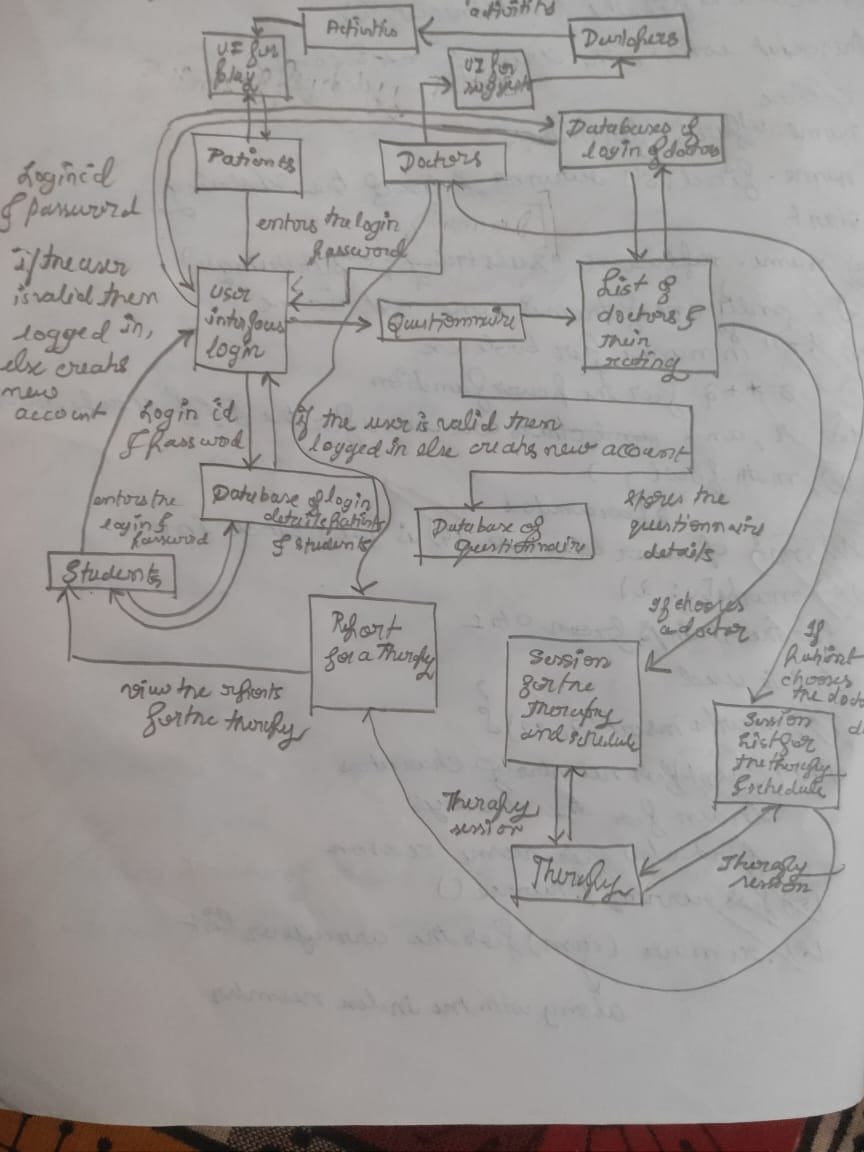 activities
Activities
Developers
UI for
play
UI for
suggest
Databases of
login of doctors
Patients
Doctors
Login id
& password
enters the login
password
if the user
is valid then
logged in,
else create
new
account
User
interface
login
Questionnaire
List of
doctors &
their
rating
Login id
& password
if the user is valid then
logged in else create new account
enters the
login &
password
Database of login
details Patients
& students
Database of
Questionnaire
stores the
questionnaire
details
Students
Report
for a Therapy
If chooses
a doctor
If
Patient
chooses
the doct
view the reports
for the therapy
Session
for the
therapy
and schedule
Session
list for
the therapy
& schedule
Therapy
session
Therapy
Therapy
session